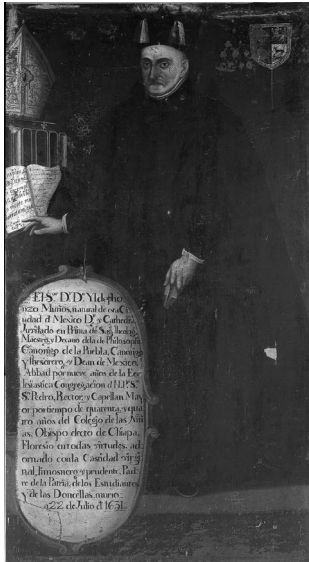 El Sr. D. Dr. Yldepho
nzo Muños, natural de esta Ciu
dad d Mexico Dr. y Cathedra.
Jubilado en Prima de Sag. Theolog.
Maestro, y Decano dela de Philosophia
Canonigo de la Puebla, Canonigo
y Thesorero, y Dean de Mexico,
Abbad por nueve años de la Ecc
lesiastica Congregacion d N.P.S.
S. Pedro, Rector, y Capellan May
or por tiempo de quarenta, y qua
tro años del Colegio de las Niñ
as, Obispo electo de Chiapa.
Floresio en todas virtudes, ad
ornado con la Castidad virgi
nal, limosnero, y prudente, Pad
re de la Patria, de los Estudiantes
y de las Doncellas, murio
a 22 de Julio d 1631